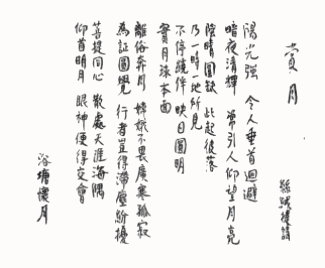 賞月
陽光強 令人垂首迴避
暗夜清輝 常引人仰望月亮
陰晴圓缺 此起彼落
乃一時一地所見
不停繞伴 映日圓明
實月球本面
離俗奔月 嫦娥不畏廣寒孤寂
為証圓覺 行者豈得滯塵紛擾
菩提同心 散處天涯海隅
仰首明月 眼神便得交會